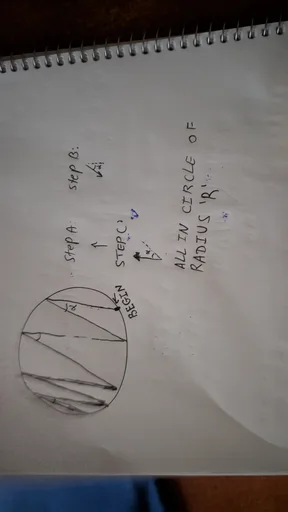 Step A:
Step B:
STEP C:
ALL IN CIRCLE OF
RADIUS 'R'
BEGIN